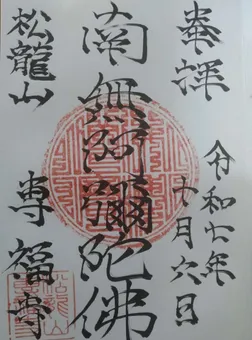 奉拝
令和七年
十月六日
南無阿彌陀佛
松龍山
專福寺